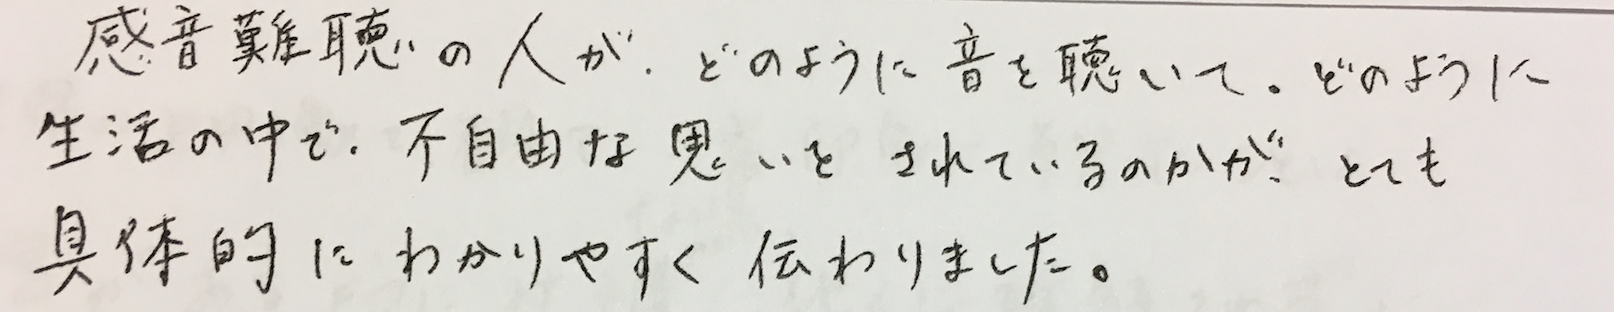 感音難聴の人が、どのように音を聴いて。どのように
生活の中で、不自由な思いをされているのかが、とても
具体的にわかりやすく伝わりました。